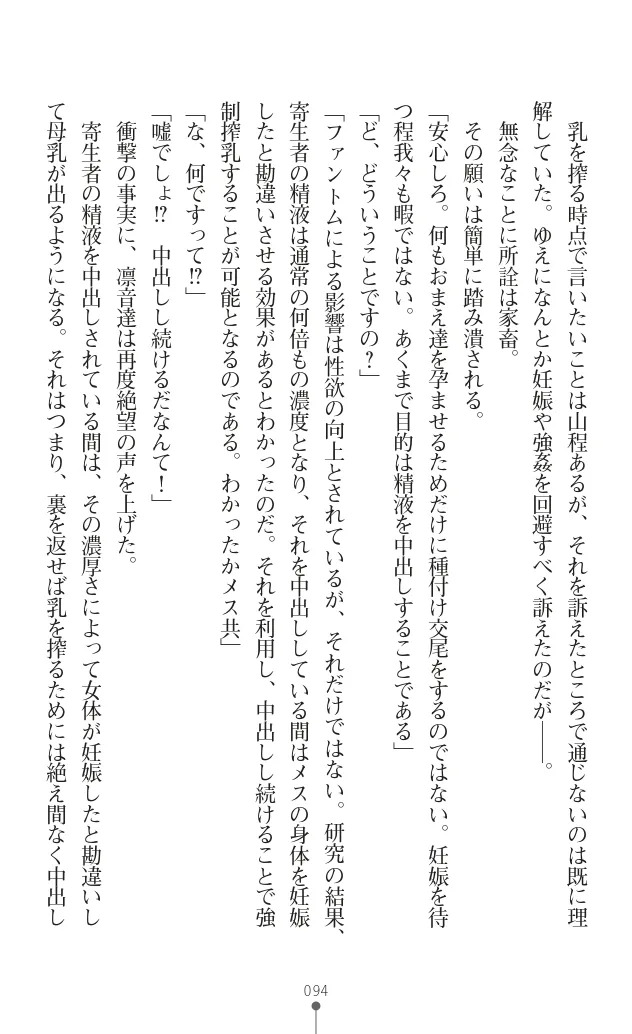 乳を搾る時点で言いたいことは山程あるが、それを訴えたところで通じないのは既に理
解していた。ゆえになんとか妊娠や強姦を回避すべく訴えたのだが――。
無念なことに所詮は家畜。
その願いは簡単に踏み潰される。
「安心しろ。何もおまえ達を孕ませるためだけに種付け交尾をするのではない。妊娠を待
つ程我々も暇ではない。あくまで目的は精液を中出しすることである」
「ど、どういうことですの？」
「ファントムによる影響は性欲の向上とされているが、それだけではない。研究の結果、
寄生者の精液は通常の何倍もの濃度となり、それを中出ししている間はメスの身体を妊娠
したと勘違いさせる効果があるとわかったのだ。それを利用し、中出しし続けることで強
制搾乳することが可能となるのである。わかったかメス共」
「な、何ですって!?」
「嘘でしょ!?　中出しし続けるだなんて！」
衝撃の事実に、凛音達は再度絶望の声を上げた。
寄生者の精液を中出しされている間は、その濃厚さによって女体が妊娠したと勘違いし
て母乳が出るようになる。それはつまり、裏を返せば乳を搾るためには絶え間なく中出し
094